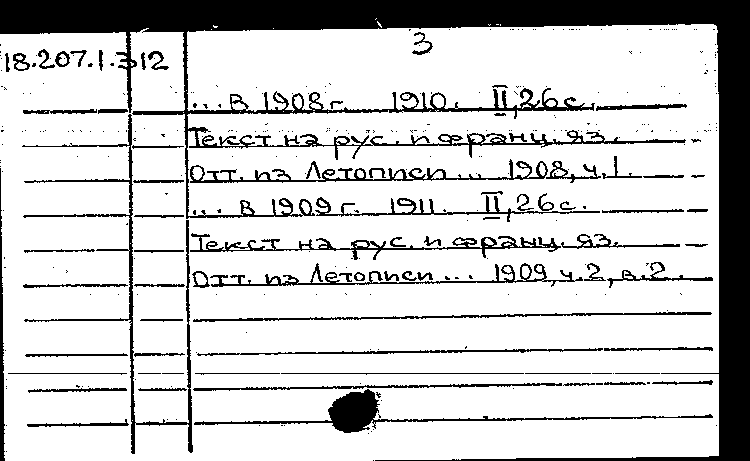 3
18.207.1.312
... в 1908 г. 1910. II, 26 с.
Текст на рус. и франц. яз.
Отт. из Летописи ... 1908, ч. 1.
... в 1909 г. 1911. II, 26 с.
Текст на рус. и франц. яз.
Отт. из Летописи ... 1909, ч. 2, в. 2.